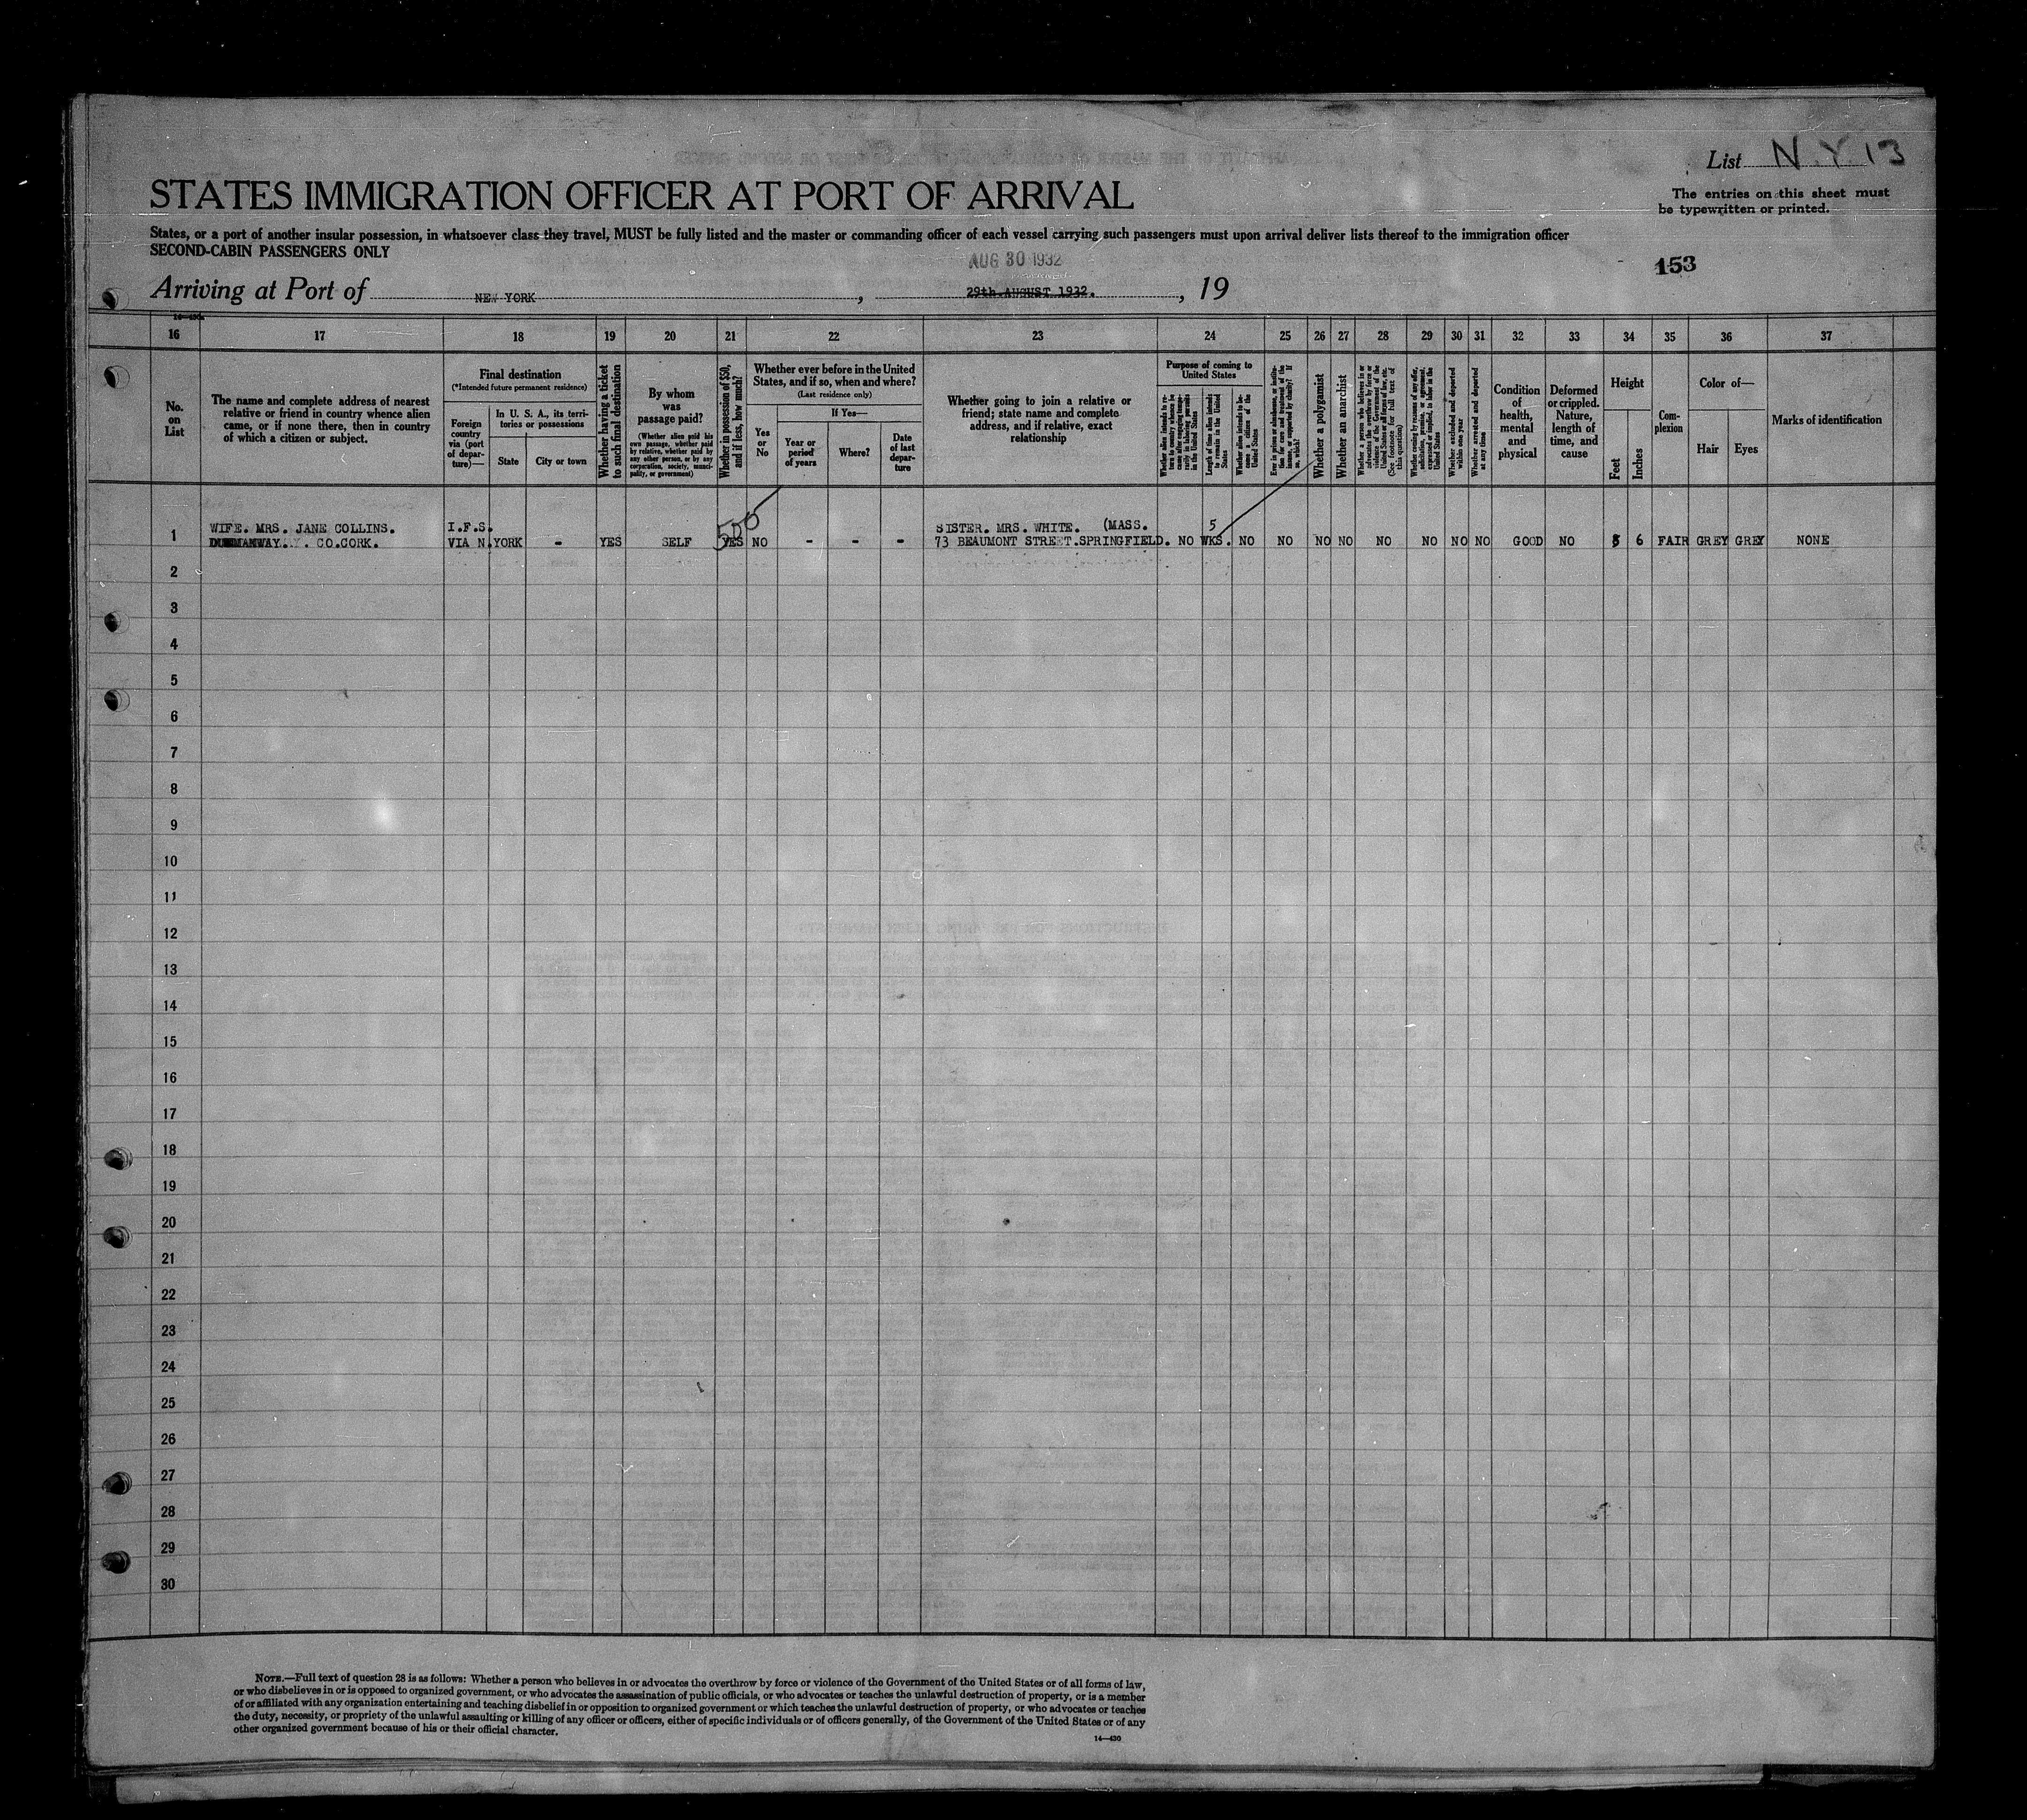 List N.Y 13
STATES IMMIGRATION OFFICER AT PORT OF ARRIVAL
The entries on this sheet must
be typewritten or printed.
States, or a port of another insular possession, in whatsoever class they travel, MUST be fully listed and the master or commanding officer of each vessel carrying such passengers must upon arrival deliver lists thereof to the immigration officer
SECOND-CABIN PASSENGERS ONLY
AUG 30 1932
153
Arriving at Port of NEW YORK, 29th AUGUST 1932., 19
16 17 18 19 20 21 22 23 24 25 26 27 28 29 30 31 32 33 34 35 36 37
No.
on
List
The name and complete address of nearest
relative or friend in country whence alien
came, or if none there, then in country
of which a citizen or subject.
Final destination
(*Intended future permanent residence)
Foreign
country
via (port
of depar-
ture)—
In U. S. A., its terri-
tories or possessions
State
City or town
Whether having a ticket
to such final destination
By whom
was
passage paid?
(Whether alien paid his
own passage, whether paid
by relative, whether paid by
any other person, or by any
corporation, society, munici-
pality, or government)
Whether in possession of $50,
and if less, how much?
Whether ever before in the United
States, and if so, when and where?
(Last residence only)
Yes
or
No
If Yes—
Year or
period
of years
Where?
Date
of last
depar-
ture
Whether going to join a relative or
friend; state name and complete
address, and if relative, exact
relationship
Purpose of coming to
United States
Whether alien intends to re-
turn to country whence he
came after engaging tempo-
rarily in laboring pursuits
in the United States
Length of time alien intends
to remain in the United
States
Whether alien intends to be-
come a citizen of the
United States
Ever in prison or almshouse, or institu-
tion for care and treatment of the
insane, or supported by charity? If
so, which?
Whether a polygamist
Whether an anarchist
Whether a person who believes in or
advocates the overthrow by force or
violence of the Government of the
United States or all forms of law, etc.
(See footnote for full text of
this question)
Whether coming by reason of any offer,
solicitation, promise, or agreement,
expressed or implied, to labor in the
United States
Whether excluded and deported
within one year
Whether arrested and deported
at any time
Condition
of
health,
mental
and
physical
Deformed
or crippled.
Nature,
length of
time, and
cause
Height
Feet
Inches
Com-
plexion
Color of—
Hair
Eyes
Marks of identification
500
WIFE. MRS. JANE COLLINS. I.F.S. SISTER. MRS. WHITE. (MASS. 5
1 DUNMANWAY. CO.CORK. VIA N.YORK - YES SELF YES NO - - - 73 BEAUMONT STREET.SPRINGFIELD. NO WKS. NO NO NO NO NO NO NO NO GOOD NO 5 6 FAIR GREY GREY NONE
2
3
4
5
6
7
8
9
10
11
12
13
14
15
16
17
18
19
20
21
22
23
24
25
26
27
28
29
30
NOTE.—Full text of question 28 is as follows: Whether a person who believes in or advocates the overthrow by force or violence of the Government of the United States or of all forms of law,
or who disbelieves in or is opposed to organized government, or who advocates the assassination of public officials, or who advocates or teaches the unlawful destruction of property, or is a member
of or affiliated with any organization entertaining and teaching disbelief in or opposition to organized government or which teaches the unlawful destruction of property, or who advocates or teaches
the duty, necessity, or propriety of the unlawful assaulting or killing of any officer or officers, either of specific individuals or of officers generally, of the Government of the United States or of any
other organized government because of his or their official character.
14—430